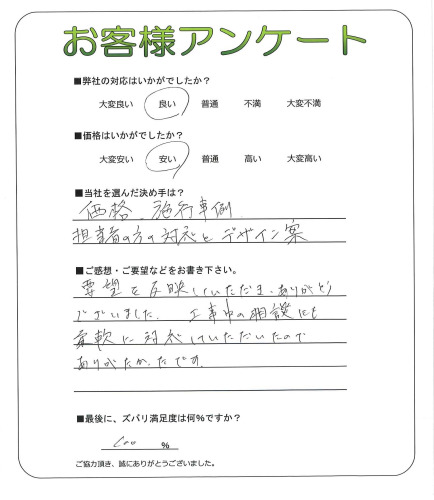 お客様アンケート
■弊社の対応はいかがでしたか？
大変良い 良い 普通 不満 大変不満
■価格はいかがでしたか？
大変安い 安い 普通 高い 大変高い
■当社を選んだ決め手は？
価格、施行事例
担当者の方の対応とデザイン案
■ご感想・ご要望などをお書き下さい。
要望を反映していただき、ありがとう
ございました。工事中の相談にも
柔軟に対応していただいたので
ありがたかったです。
■最後に、ズバリ満足度は何％ですか？
100 ％
ご協力頂き、誠にありがとうございました。